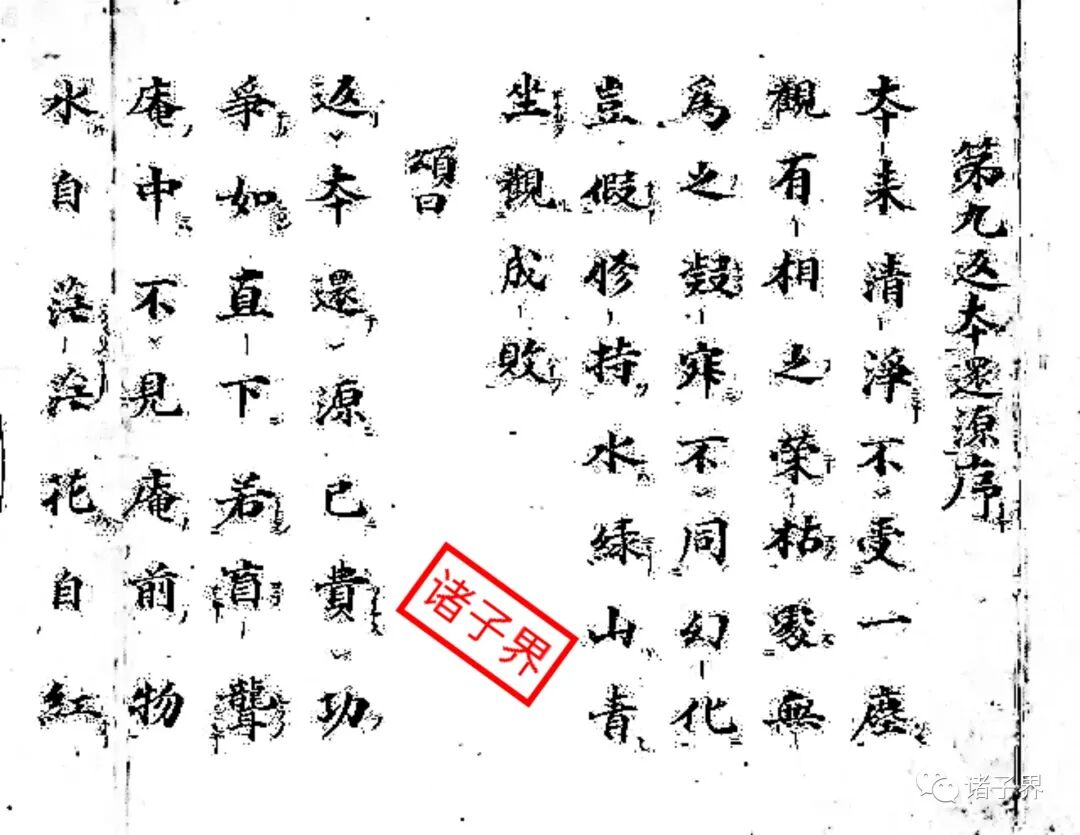 第九返夲還源序
夲来清淨不受一塵
觀有相之榮枯處無
為之凝寂不同幻化
豈假修持水緑山青
坐觀成敗
頌曰
返夲還源已費功
爭如直下若盲聾
庵中不見庵前物
水自茫茫花自紅
诸子界
诸子界